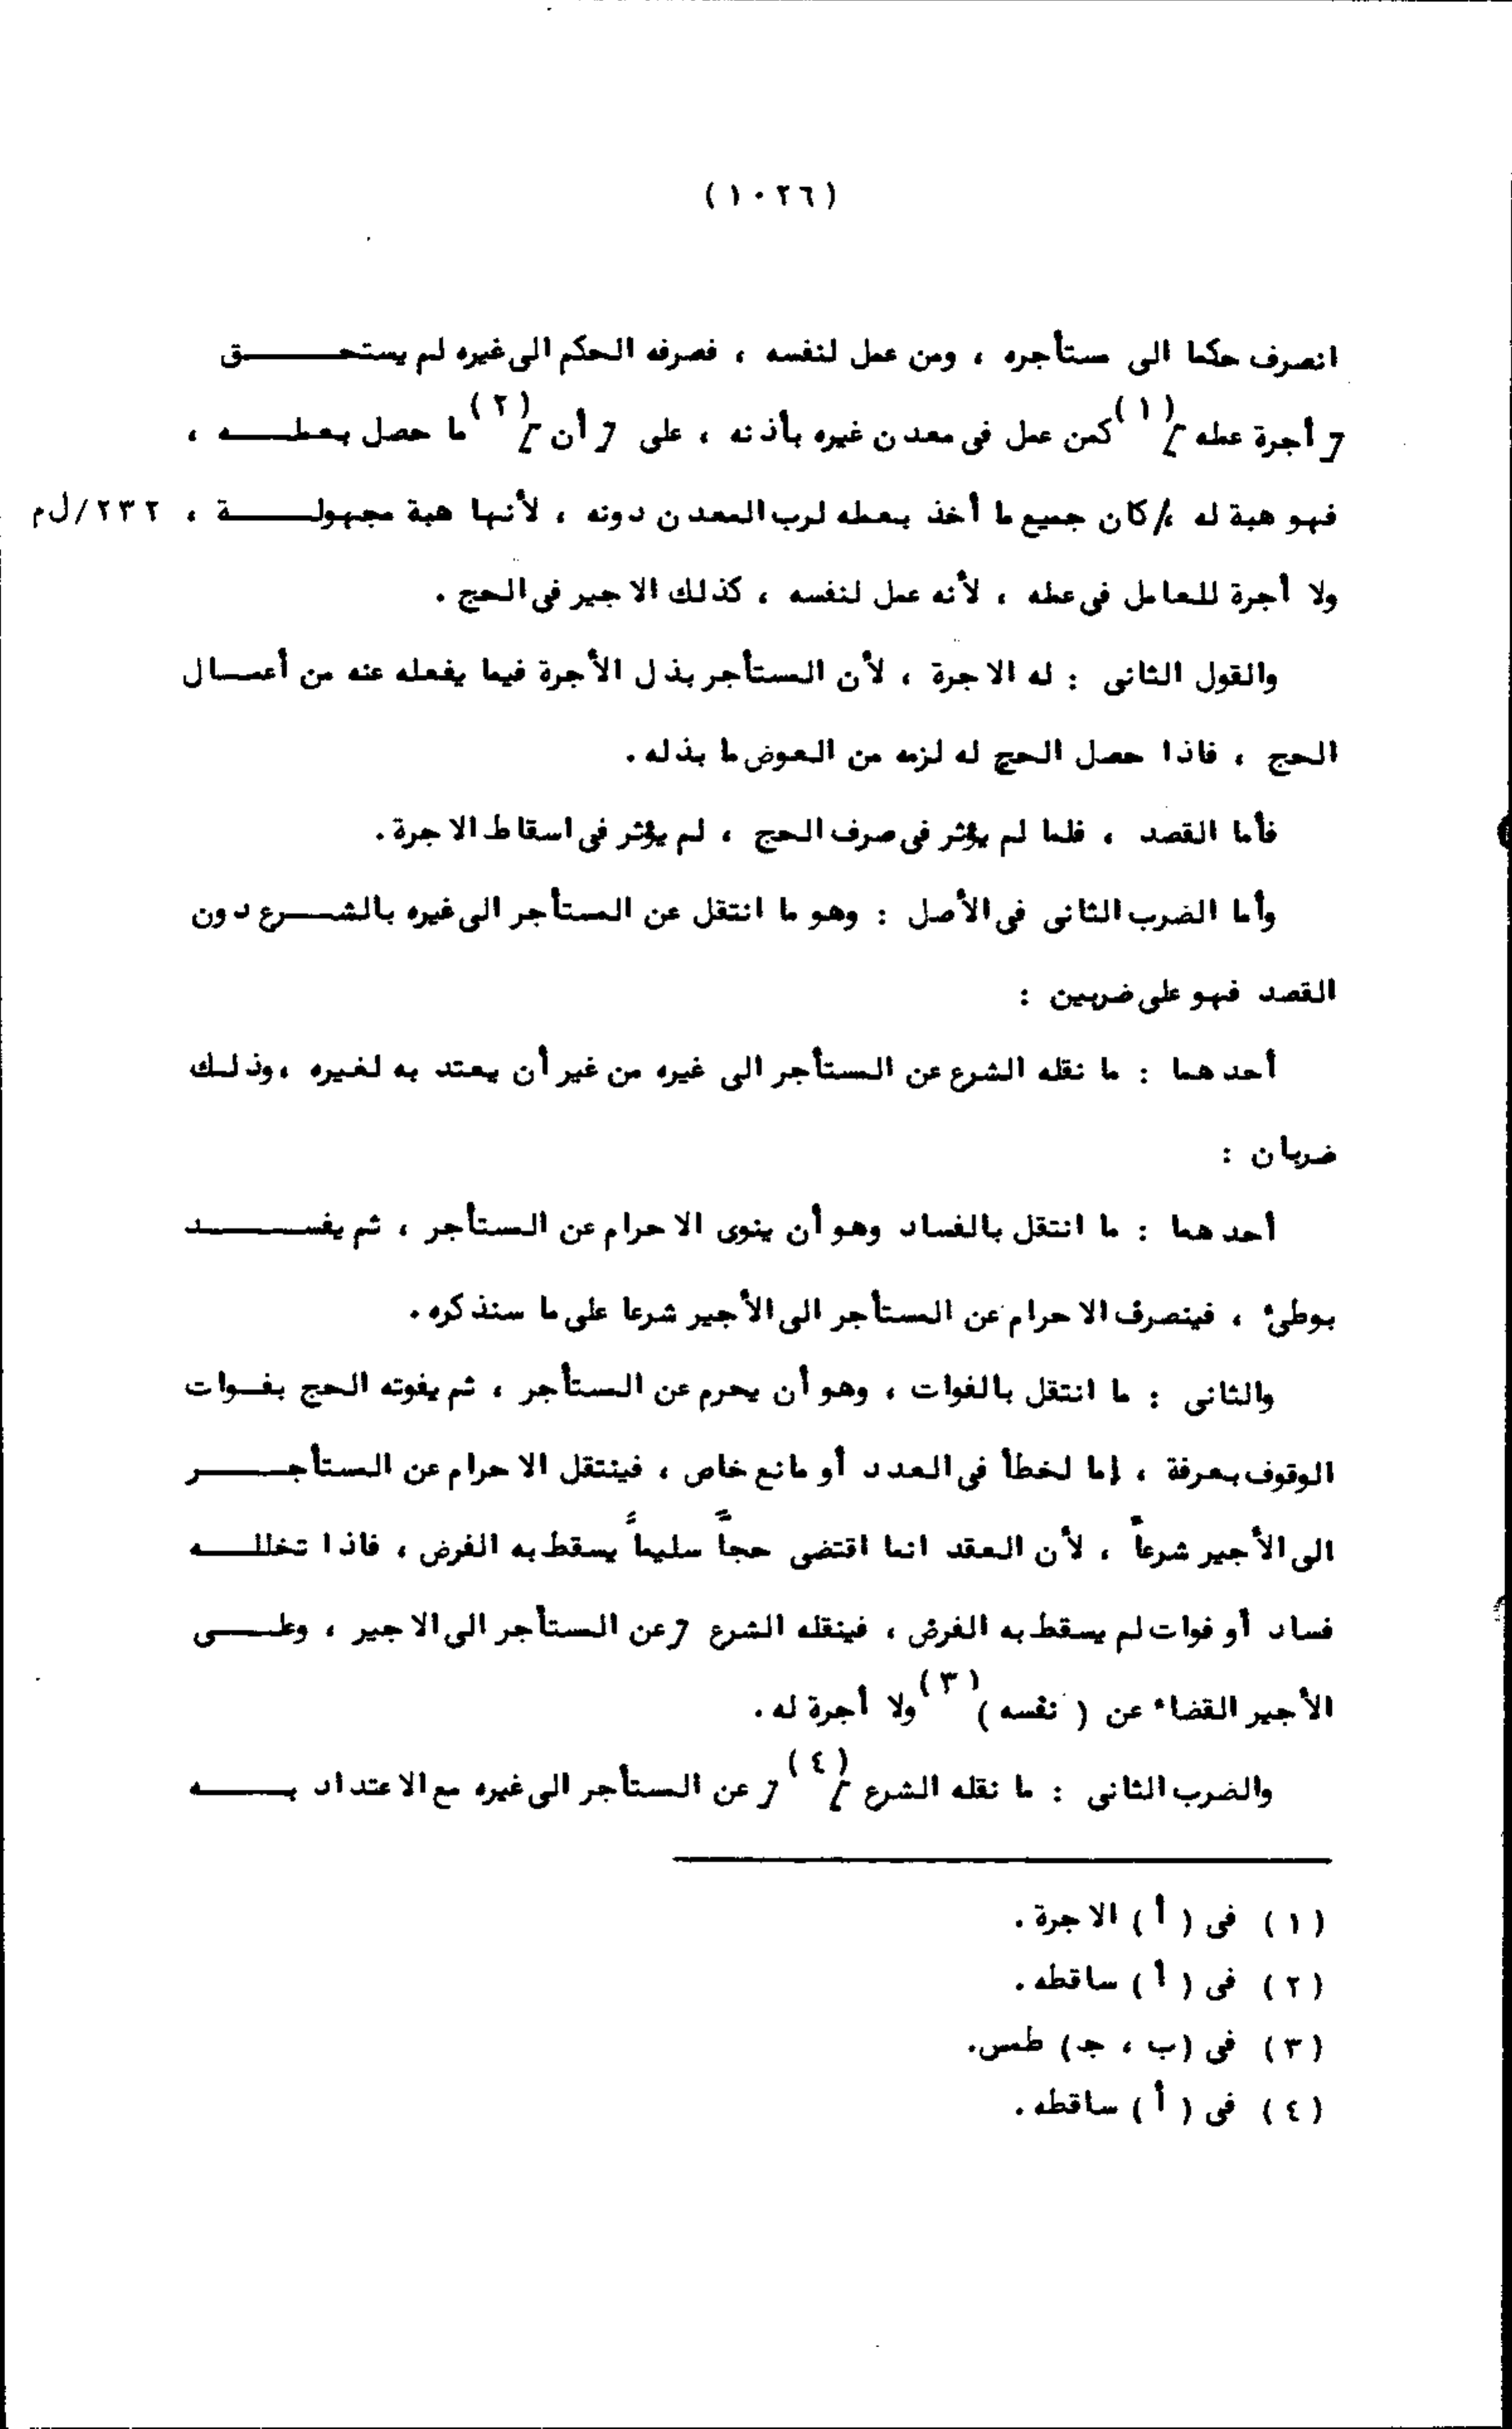 (١٠٢٦)
انصرف حكما الى مستأجره ، ومن عمل لنفسه ، فصرفه الحكم الى غيره لم يستحـــــق
[ أجرة عمله ](١) كمن عمل فى معدن غيره بأذنه ، على [ أن ](٢) ما حصل بعملــــه ،
فهو هبة له ،/ كان جميع ما أخذ بعمله لرب المعدن دونه ، لأنها هبة مجهولـــــة ، ٢٣٢/ل م
ولا أجرة للعامل فى عمله ، لأنه عمل لنفسه ، كذلك الاجير فى الحج .
والقول الثانى : له الاجرة ، لأن المستأجر بذل الأجرة فيما يفعله عنه من أعمـــال
الحج ، فاذا حصل الحج له لزمه من العوض ما بذله .
فأما القصد ، فلما لم يؤثر فى صرف الحج ، لم يؤثر فى اسقاط الاجرة .
وأما الضرب الثانى فى الأصل : وهو ما انتقل عن المستأجر الى غيره بالشـــرع دون
القصد فهو على ضربين :
أحدهما : ما نقله الشرع عن المستأجر الى غيره من غير أن يعتد به لغيره ، وذلـك
ضربان :
أحدهما : ما انتقل بالفساد وهو أن ينوى الاحرام عن المستأجر ، ثم يفســــــد
بوطئ ، فينصرف الاحرام عن المستأجر الى الأجير شرعا على ما سنذكره .
والثانى : ما انتقل بالفوات ، وهو أن يحرم عن المستأجر ، ثم يفوته الحج بفـوات
الوقوف بعرفة ، إما لخطأ فى العدد أو مانع خاص ، فينتقل الاحرام عن المستأجـــــر
الى الأجير شرعاً ، لأن العقد انما اقتضى حجاً سليماً يسقط به الفرض ، فاذا تخللــــه
فساد أو فوات لم يسقط به الفرض ، فينقله الشرع [ عن المستأجر الى الاجير ، وعلـــى
الأجير القضاء عن ( نفسه )(٣) ولا أجرة له .
والضرب الثانى : ما نقله الشرع ](٤) [ عن المستأجر الى غيره مع الاعتداد بــــــه
(١) فى ( أ ) الاجرة .
(٢) فى ( أ ) ساقطه .
(٣) فى (ب ، جـ) طمس.
(٤) فى ( أ ) ساقطه .